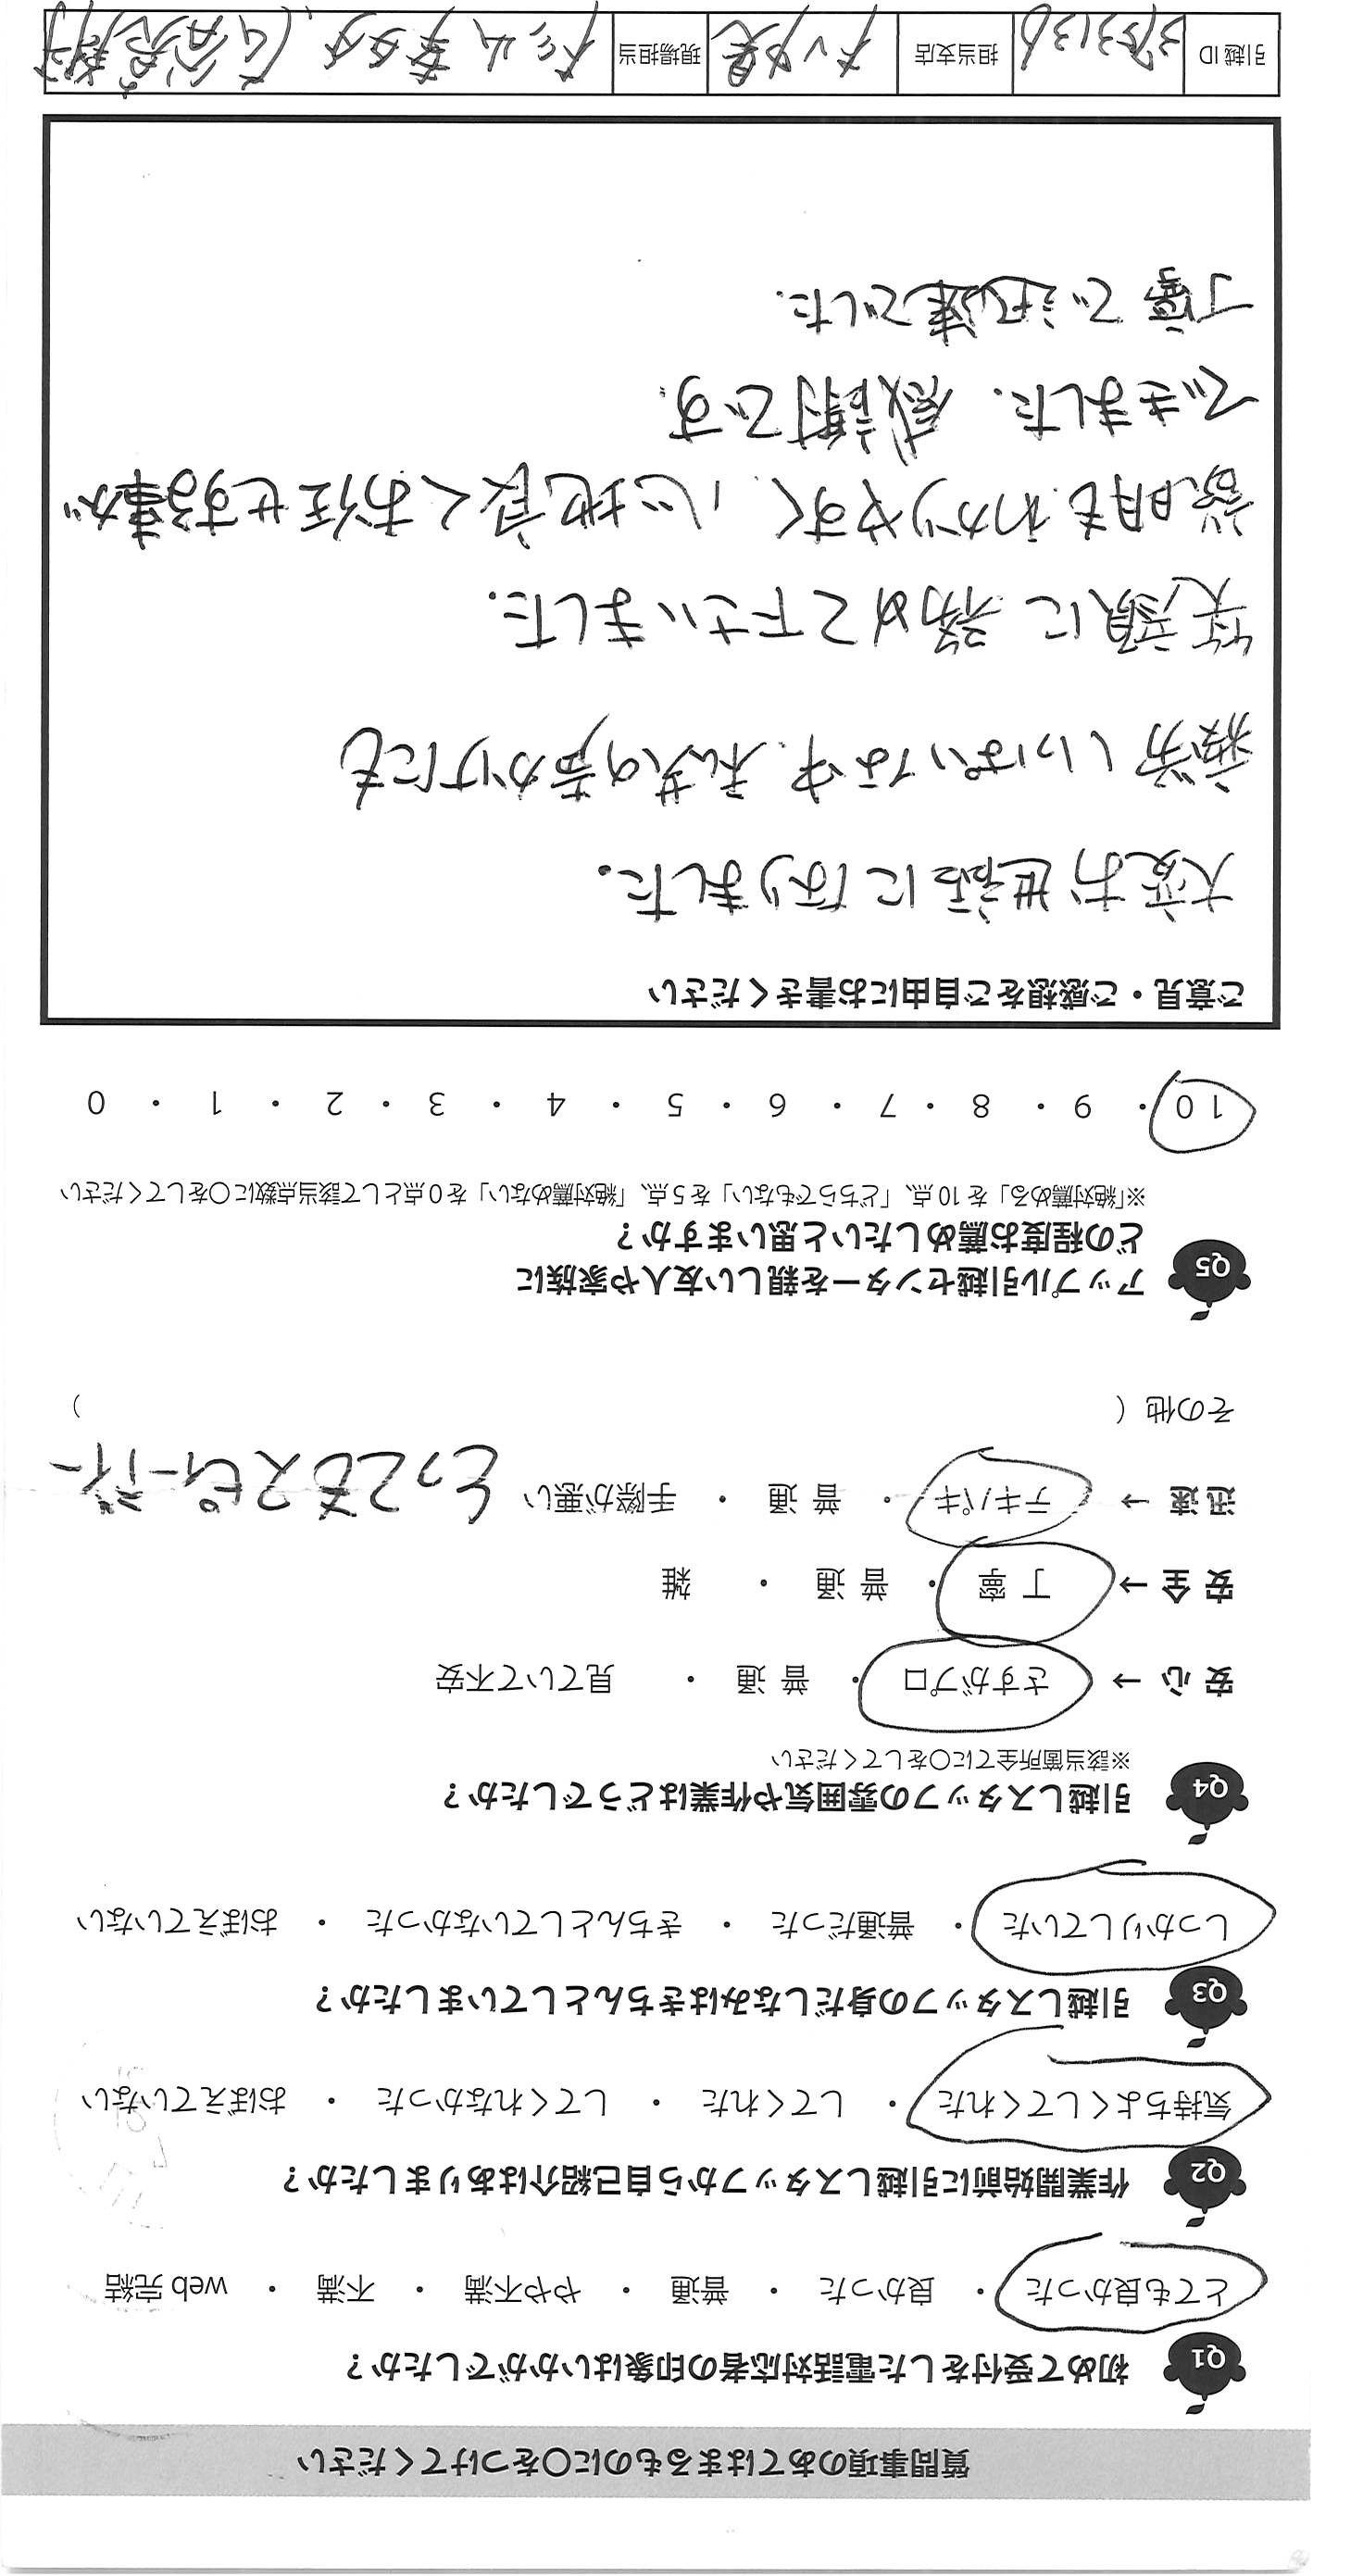 質問事項のあてはまるものに〇をつけてください
Q1 初めて受付をした電話対応者の印象はいかがでしたか？
とても良かった ・ 良かった ・ 普通 ・ やや不満 ・ 不満 ・ web 完結
Q2 作業開始前に引越しスタッフから自己紹介はありましたか？
気持ちよくしてくれた ・ してくれた ・ してくれなかった ・ おぼえていない
Q3 引越しスタッフの身だしなみはきちんとしていましたか？
しっかりしていた ・ 普通だった ・ きちんとしていなかった ・ おぼえていない
Q4 引越しスタッフの雰囲気や作業はどうでしたか？
※該当箇所全てに〇をしてください
安心 → さすがプロ ・ 普通 ・ 見ていて不安
安全 → 丁寧 ・ 普通 ・ 雑
迅速 → テキパキ ・ 普通 ・ 手際が悪い とってもスピーディー
その他（ ）
Q5 アップル引越センターを親しい友人や家族に
どの程度お薦めしたいと思いますか？
※「絶対薦める」を 10 点、「どちらでもない」を 5 点、「絶対薦めない」を 0 点として該当点数に〇をしてください
10 ・ 9 ・ 8 ・ 7 ・ 6 ・ 5 ・ 4 ・ 3 ・ 2 ・ 1 ・ 0
ご意見・ご感想をご自由にお書きください
大変お世話になりました。
疲労いっぱいな中、私共の声かけにも
笑顔に務めて下さいました.
説明もわかりやすく、心地良くお任せする事が
できました. 感謝です.
丁寧で迅速でした.
引越 ID 3853136 担当支店 現場担当